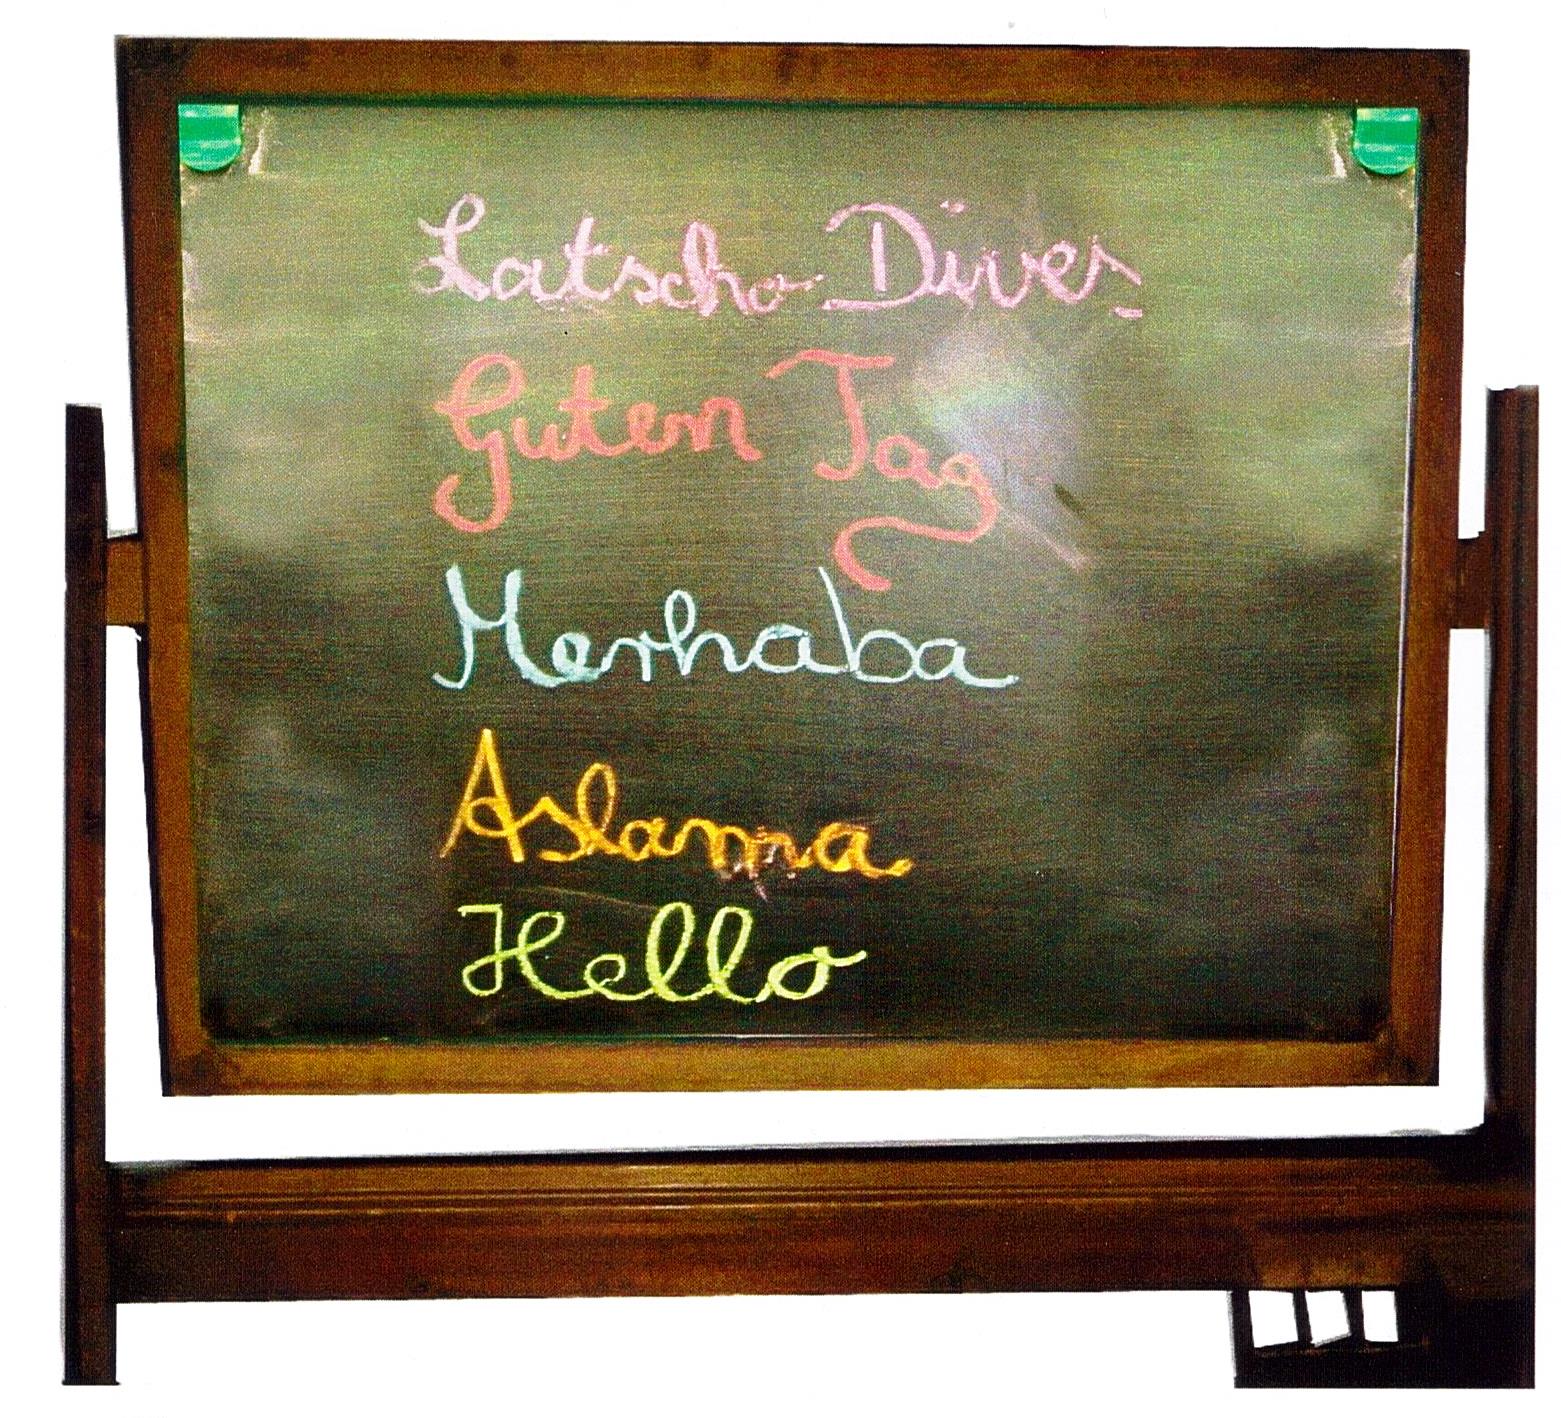 Latscho Düves
Guten Tag
Merhaba
Aslama
Hello